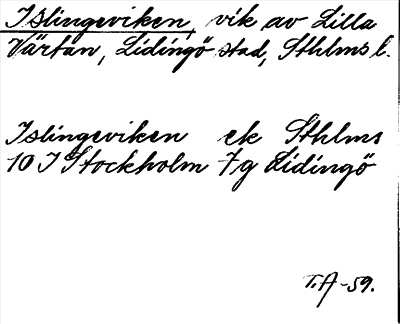 Islingeviken, vik av Lilla
Värtan, Lidingö stad, Sthlms l.
Islingeviken ek Sthlms
10 I Stockholm 7g Lidingö
T.A -59.